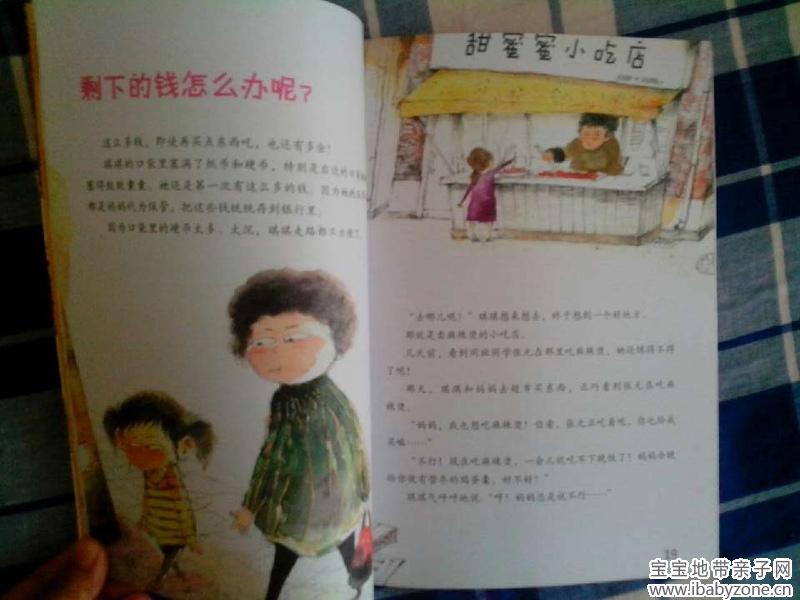 剩下的钱怎么办呢？
这么多钱，即使再买点东西吃，也还有多余！
琪琪的口袋里塞满了纸币和硬币，特别是右边的口
塞得鼓鼓囊囊。她还是第一次有这么多的钱。因为她的
都是妈妈代为保管，把这些钱统统存到银行里。
因为口袋里的硬币太多、太沉，琪琪走路都不方便了。
甜蜜蜜小吃店
“去哪儿呢？”琪琪想来想去，终于想到一个好地方。
那就是卖麻辣烫的小吃店。
几天前，看到同班同学张元在那里吃麻辣烫，她还馋得不得
了呢！
那天，琪琪和妈妈去超市买东西，正巧看到张元在吃麻
辣烫。
“妈妈，我也想吃麻辣烫！你看，张元正吃着呢，你也给我
买嘛……”
“不行！现在吃麻辣烫，一会儿就吃不下晚饭了！妈妈今晚
给你做有营养的鸡蛋羹，好不好？”
琪琪气呼呼地说：“哼！妈妈总是说不行……”
19
宝宝地带亲子网
www.ibabyzone.cn